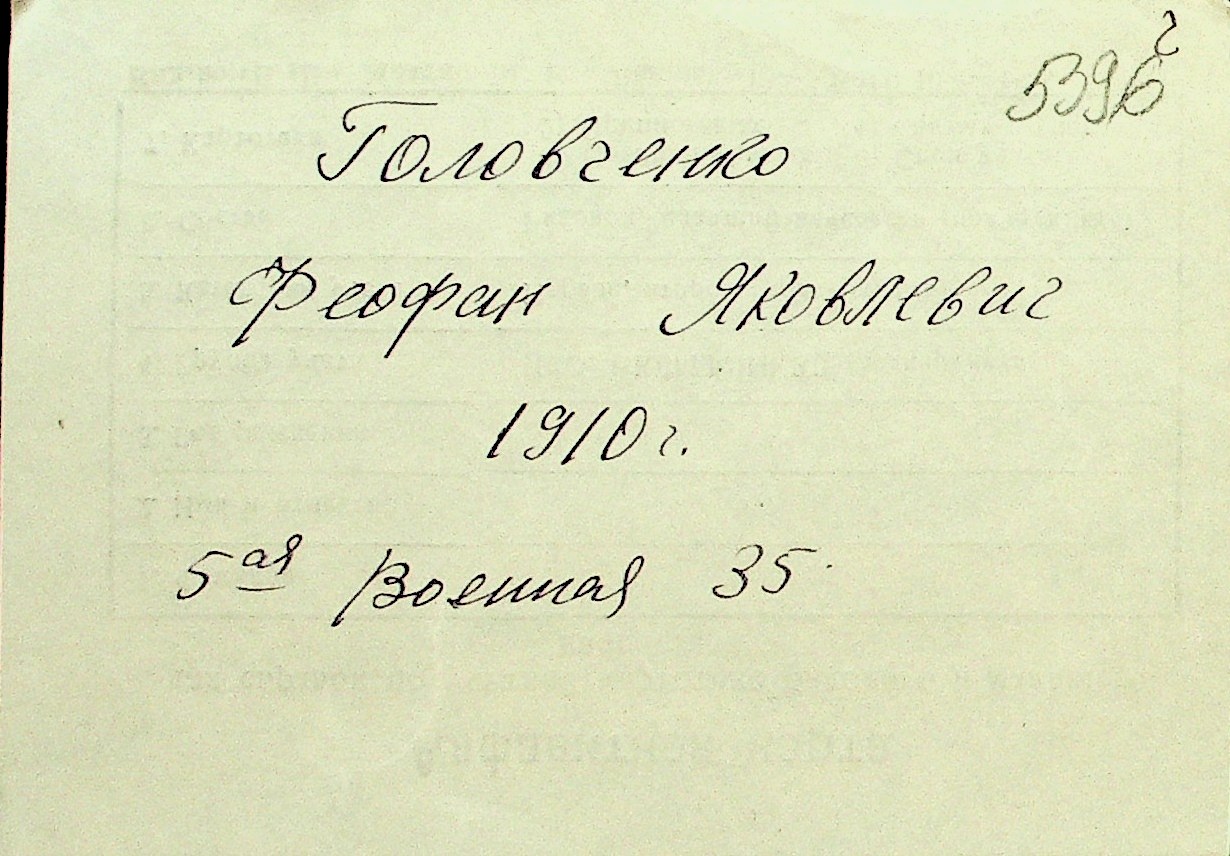 5396
Головченко
Феофан Яковлевич
1910 г.
5ая Военная 35.